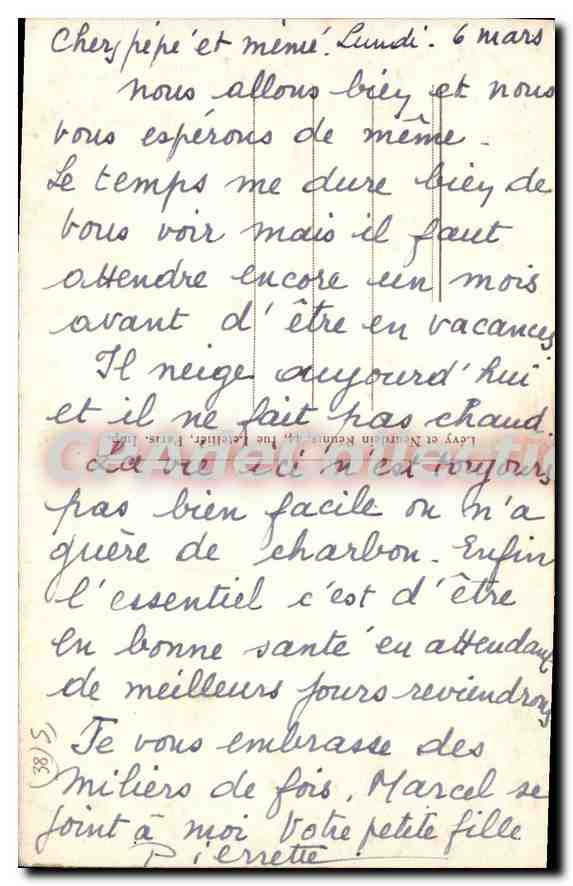 Chers pépé et mémé. Lundi. 6 mars
nous allons bien et nous
vous espérons de même.
Le temps me dure bien de
vous voir mais il faut
attendre encore un mois
avant d'être en vacances
Il neige aujourd'hui
et il ne fait pas chaud.
Lévy et Neurdein Réunis, 44, rue Letellier, Paris. Imp.
La vie ici n'est toujours
pas bien facile on n'a
guère de charbon. Enfin
l'essentiel c'est d'être
en bonne santé en attendant
de meilleurs jours reviendrons
Je vous embrasse des
miliers de fois. Marcel se
joint à moi Votre petite fille
Pierrette
(38) S